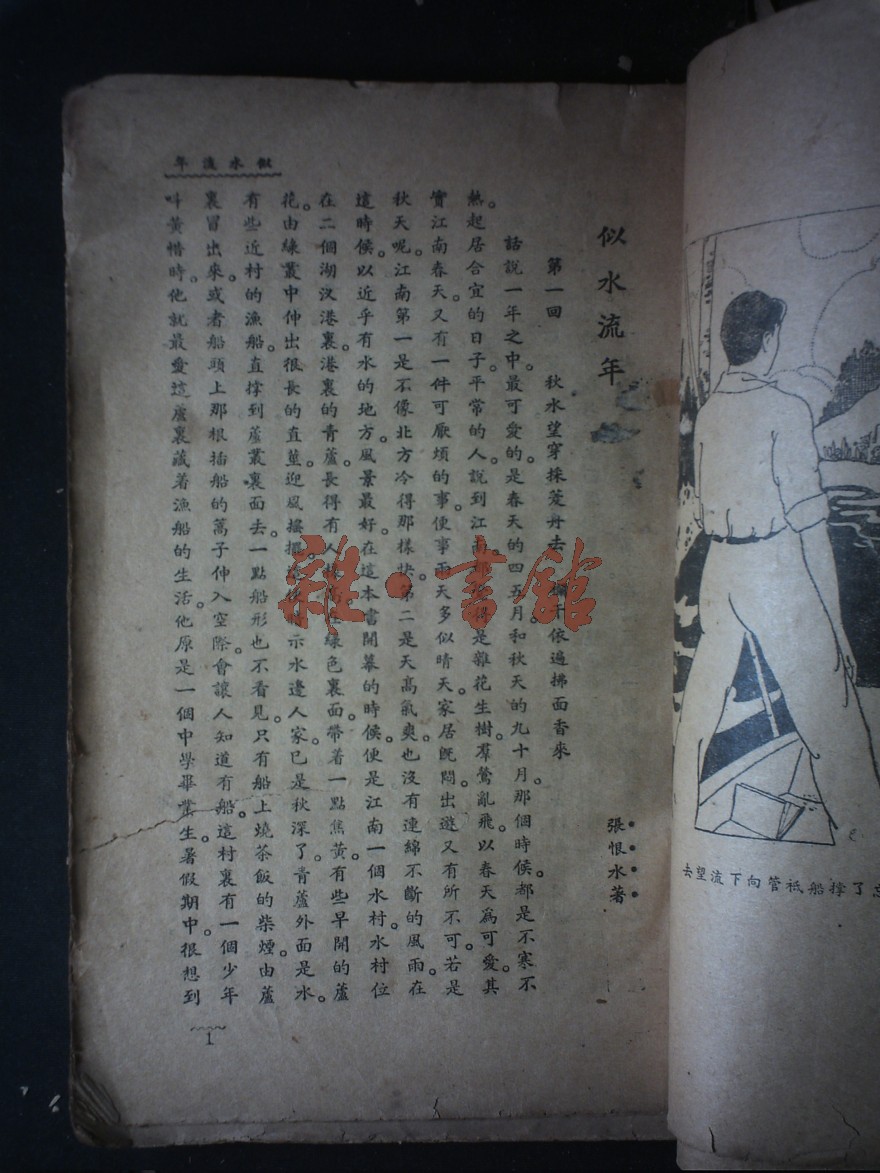 似水流年
張恨水著
第一回 秋水望穿採菱舟去 干依遍拂面香來
話說一年之中。最可愛的。是春天的四五月。和秋天的九十月。那個時侯。都是不寒不
熱。起居合宜的日子。平常的人。說到江南。都得是雜花生樹。羣鶯亂飛。以春天爲可愛。其
實江南春天。又有一件可厭煩的事。便事雨天多似晴天。家居旣悶。出遊又有所不可。若是
秋天呢。江南第一是不像北方冷得那樣快。第二是天高氣爽。也沒有連綿不斷的風雨。在
這時侯。以近乎有水的地方。風景最好。在這本書開幕的時侯。便是江南一個水村。水村位
在二個湖汊港裏。港裏的青蘆。長得有人綠色裏面。帶着一點焦黃。有些早開的蘆
花。由綠叢中伸出很長的直莖。迎風搖擺。示水邊人家。已是秋深了。青蘆外面是水。
有些近村的漁船。直撑到蘆叢裏面去。一點船形也不看見。只有船上燒茶飯的柴煙。由蘆
裏冒出來。或者船頭上那根插船的篙子伸入空際。會讓人知道有船。這村裏有一個少年
叫黃惜時。他就最愛這蘆裏藏着漁船的生活。他原是一個中學畢業生。暑假期中。很想到
似水流年
1
了撑船祇管向下流望去
雜·書館